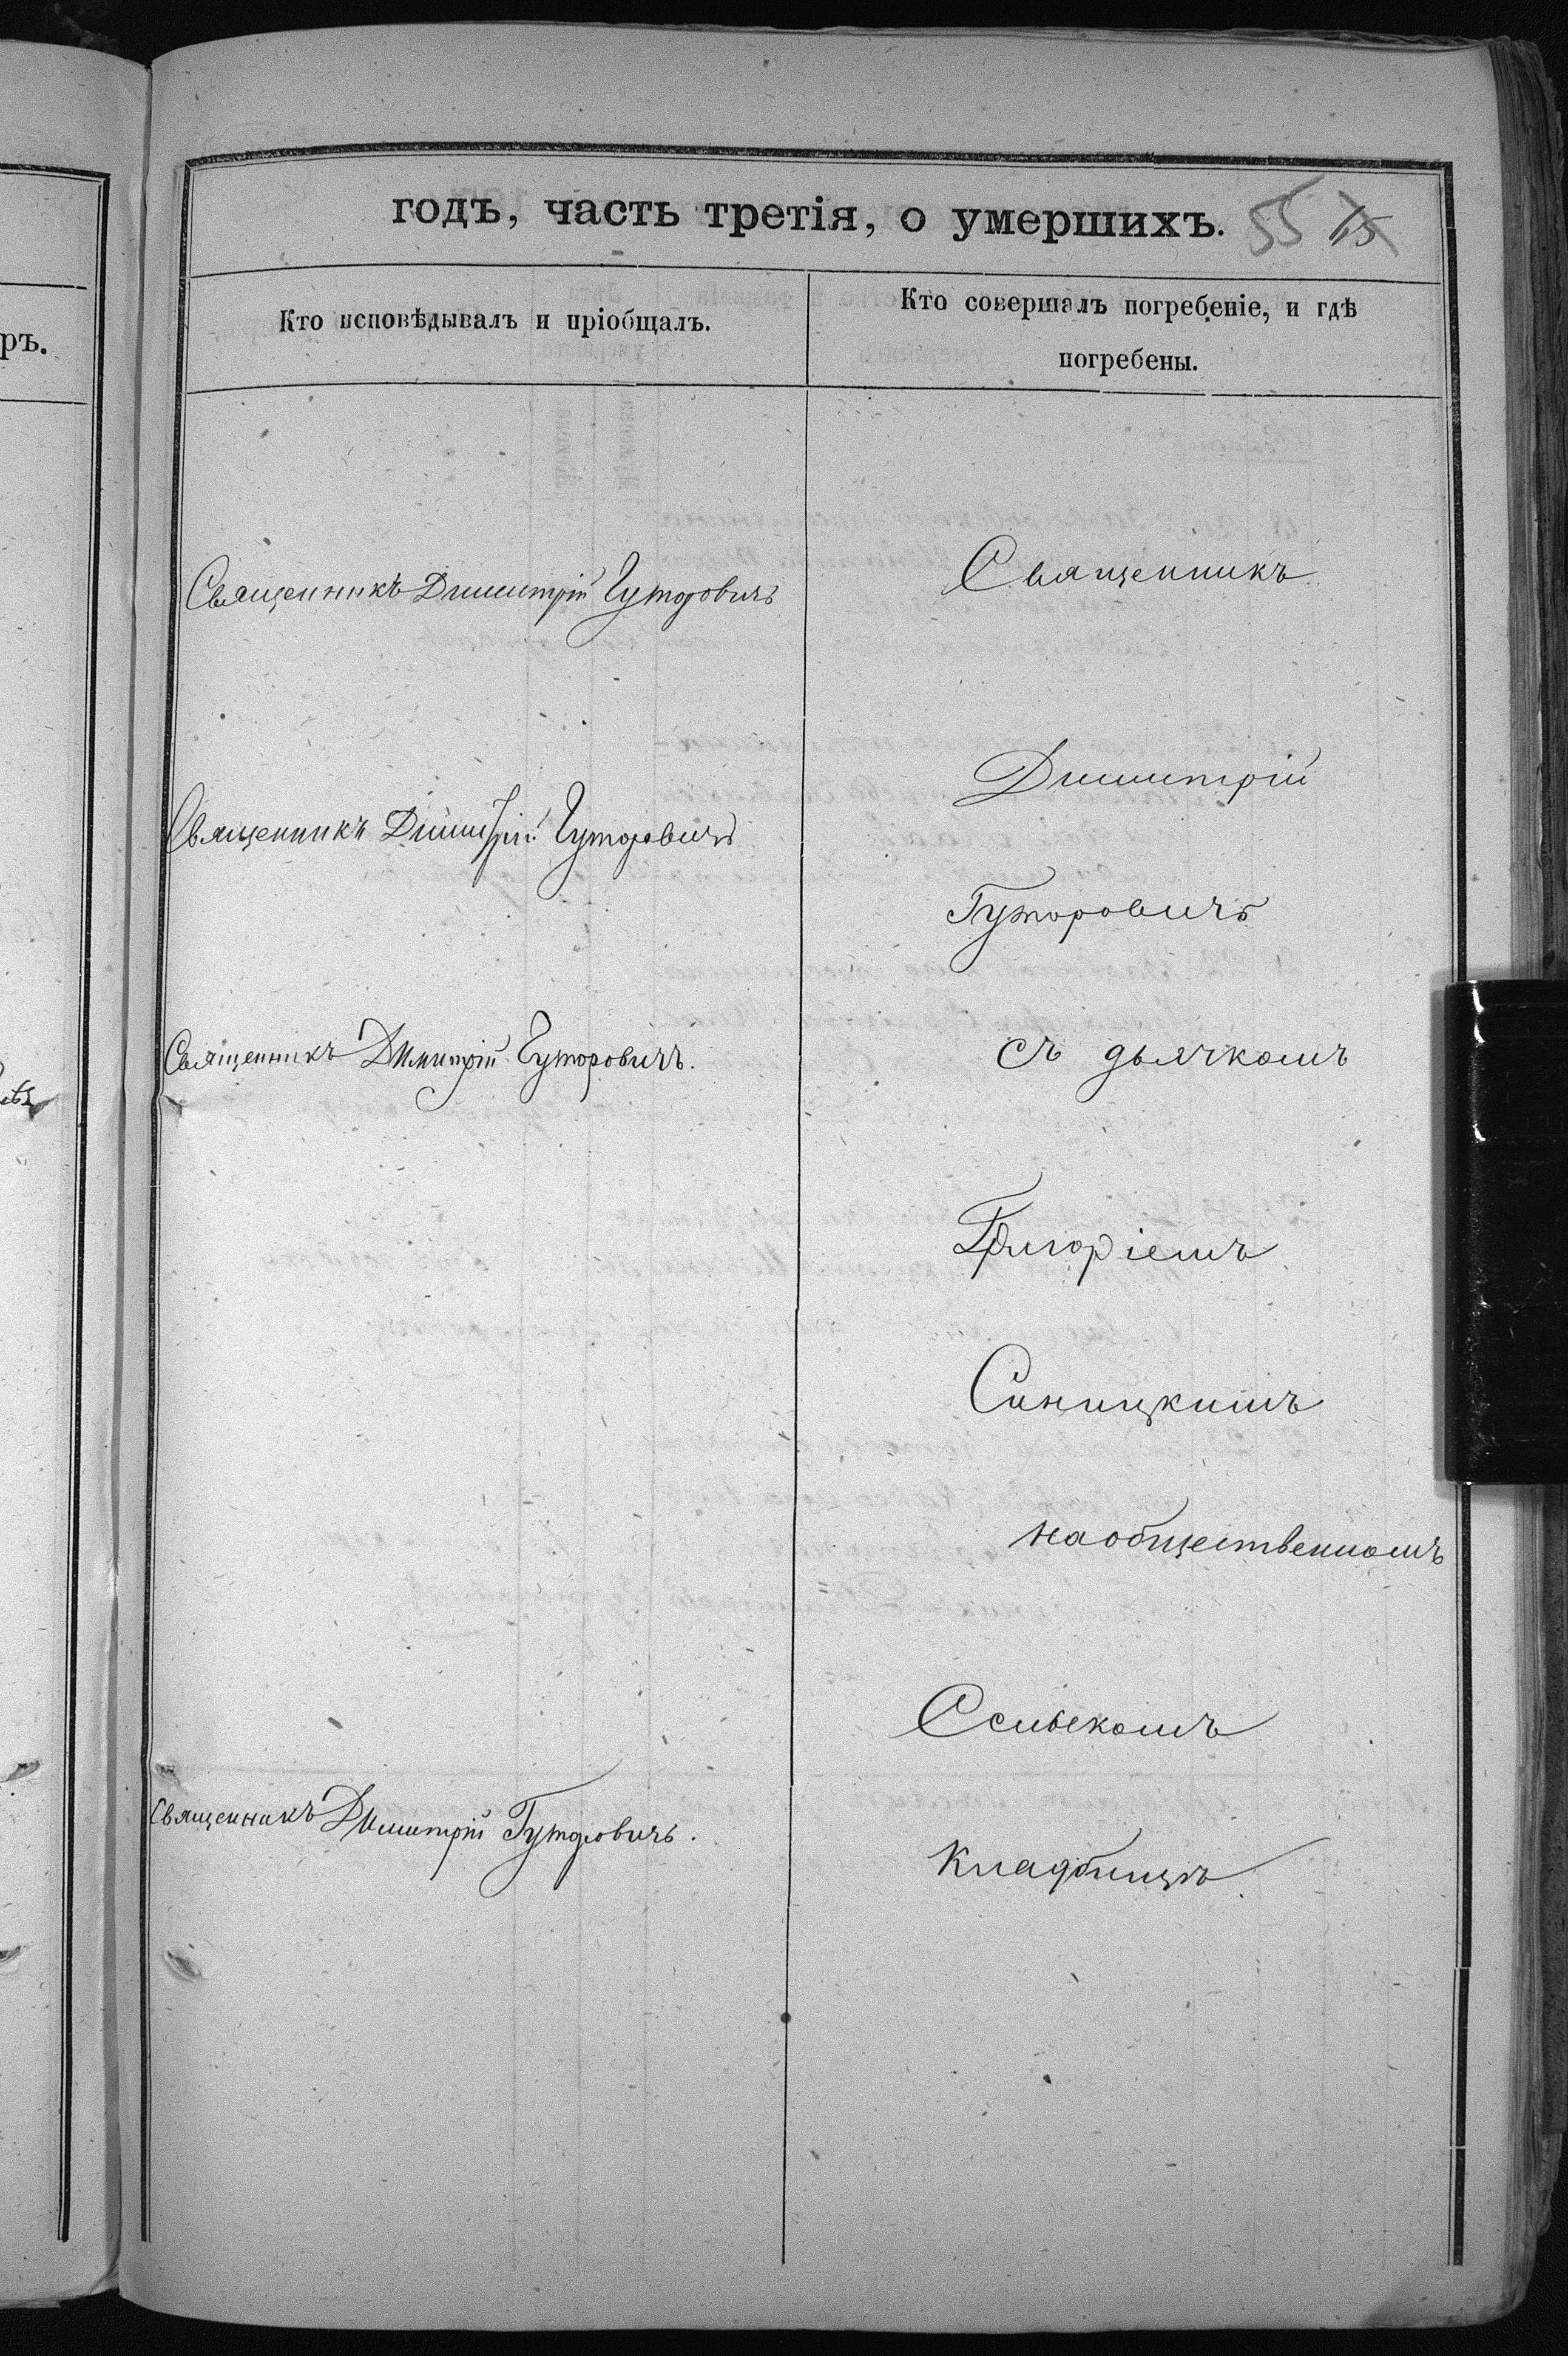 ръ.
годъ, часть третія, о умершихъ. 55 45
Кто исповѣдывалъ и пріобщалъ.
Кто совершалъ погребеніе, и гдѣ
погребены.
Священникъ Димитрій Гуторовичъ
Священникъ Димитрій Гуторовичъ
Священникъ Димитрій Гуторовичъ.
Священникъ Димитрій Гуторовичъ.
Священникъ
Димитрій
Гуторовичъ
съ дьячкомъ
Григоріемъ
Синицкимъ
на общественномъ
Сельскомъ
Кладбищѣ